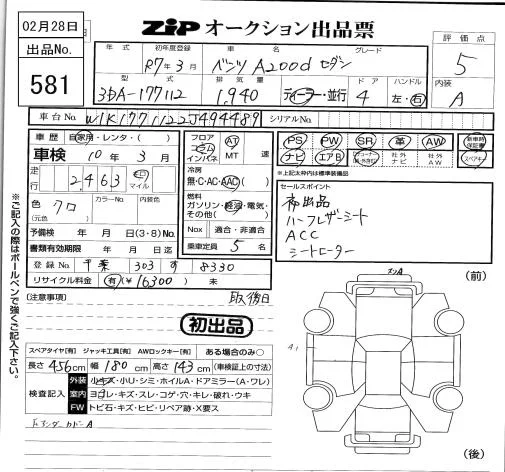 02月28日
出品No.
581
ZIP オークション出品票
年式 初年度登録 車名 グレード
R7年3月 ベンツ A200d セダン
型式 排気量 ドア ハンドル
3DA-177112 1,940 ディーラー・並行 4 左・右
評価点
5
内装
A
車台No. W1K1771122J494489 シリアルNo.
車歴 自家用・レンタ・( )
車検 10年3月
走行 2,463 キロ マイル
色 クロ (元色) カラーNo. 内装色
予備検 年 月 日(3・8)No.
書類有効期限 年 月 日迄
登録No. 千葉 303 す 8330
リサイクル料金 有(¥16300) 未
フロア コラム インパネ AT MT 速
冷房 無・C・AC・AAC( )
燃料 ガソリン・軽油・電気・その他( )
Nox 適合・非適合
乗車定員 5 名
PS PW SR 革 AW 新車時保証書
ナビ エアB 社外ナビ 社外AW スペアキー
*上記太枠内は標準装備品
セールスポイント
初出品
ハーフレザーシート
ACC
シートヒーター
[注意事項] 取後日
初出品
スペアタイヤ[有] ジャッキ工具[有] AWロックキー[有] ある場合のみ○
長さ 456cm 幅 180cm 高さ 143cm (車検証上の寸法)
検査記入
外装 小キズ・小U・シミ・ホイルA・ドアミラー(A・ワレ)
室内 ヨゴレ・キズ・スレ・コゲ・穴・キレ・破れ・ウキ
FW トビ石・キズ・ヒビ・リペア跡・X要ス
※ご記入の際はボールペンで強くご記入下さい。
(前)
(後)